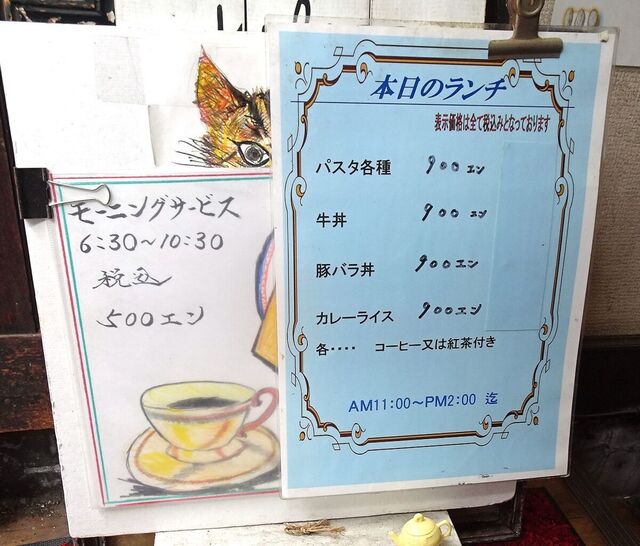 モーニングサービス
6:30〜10:30
税込
500エン
本日のランチ
表示価格は全て税込みとなっております
パスタ各種 900エン
牛丼 900エン
豚バラ丼 900エン
カレーライス 900エン
各‥‥ コーヒー又は紅茶付き
AM11:00〜PM2:00 迄